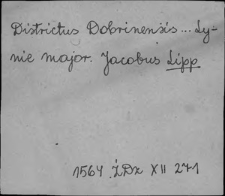 Districtus Dobrinensis... Ły-
nie major. Jacobus Lipp
1564 ŹDz XII 271